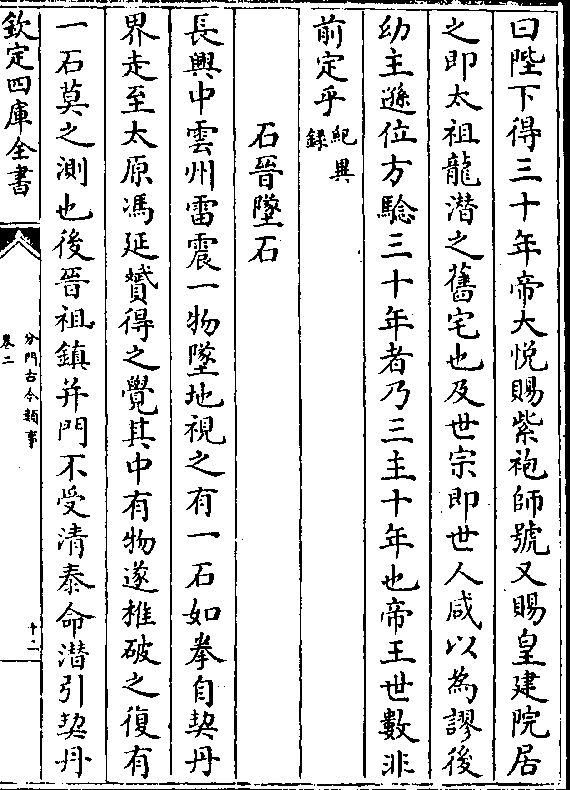 曰陛下得三十年帝大悅賜紫袍師號又賜皇建院居
之即太祖龍潛之舊宅也及世宗即世人咸以為謬後
幼主遜位方驗三十年者乃三主十年也帝王世數非
前定乎紀異錄
石晉墜石
長興中雲州雷震一物墜地視之有一石如拳自契丹
界走至太原馮延贇得之覺其中有物遂椎破之復有
一石莫之測也後晉祖鎮并門不受清泰命潛引契丹
欽定四庫全書
分門古今類事
卷二
十二